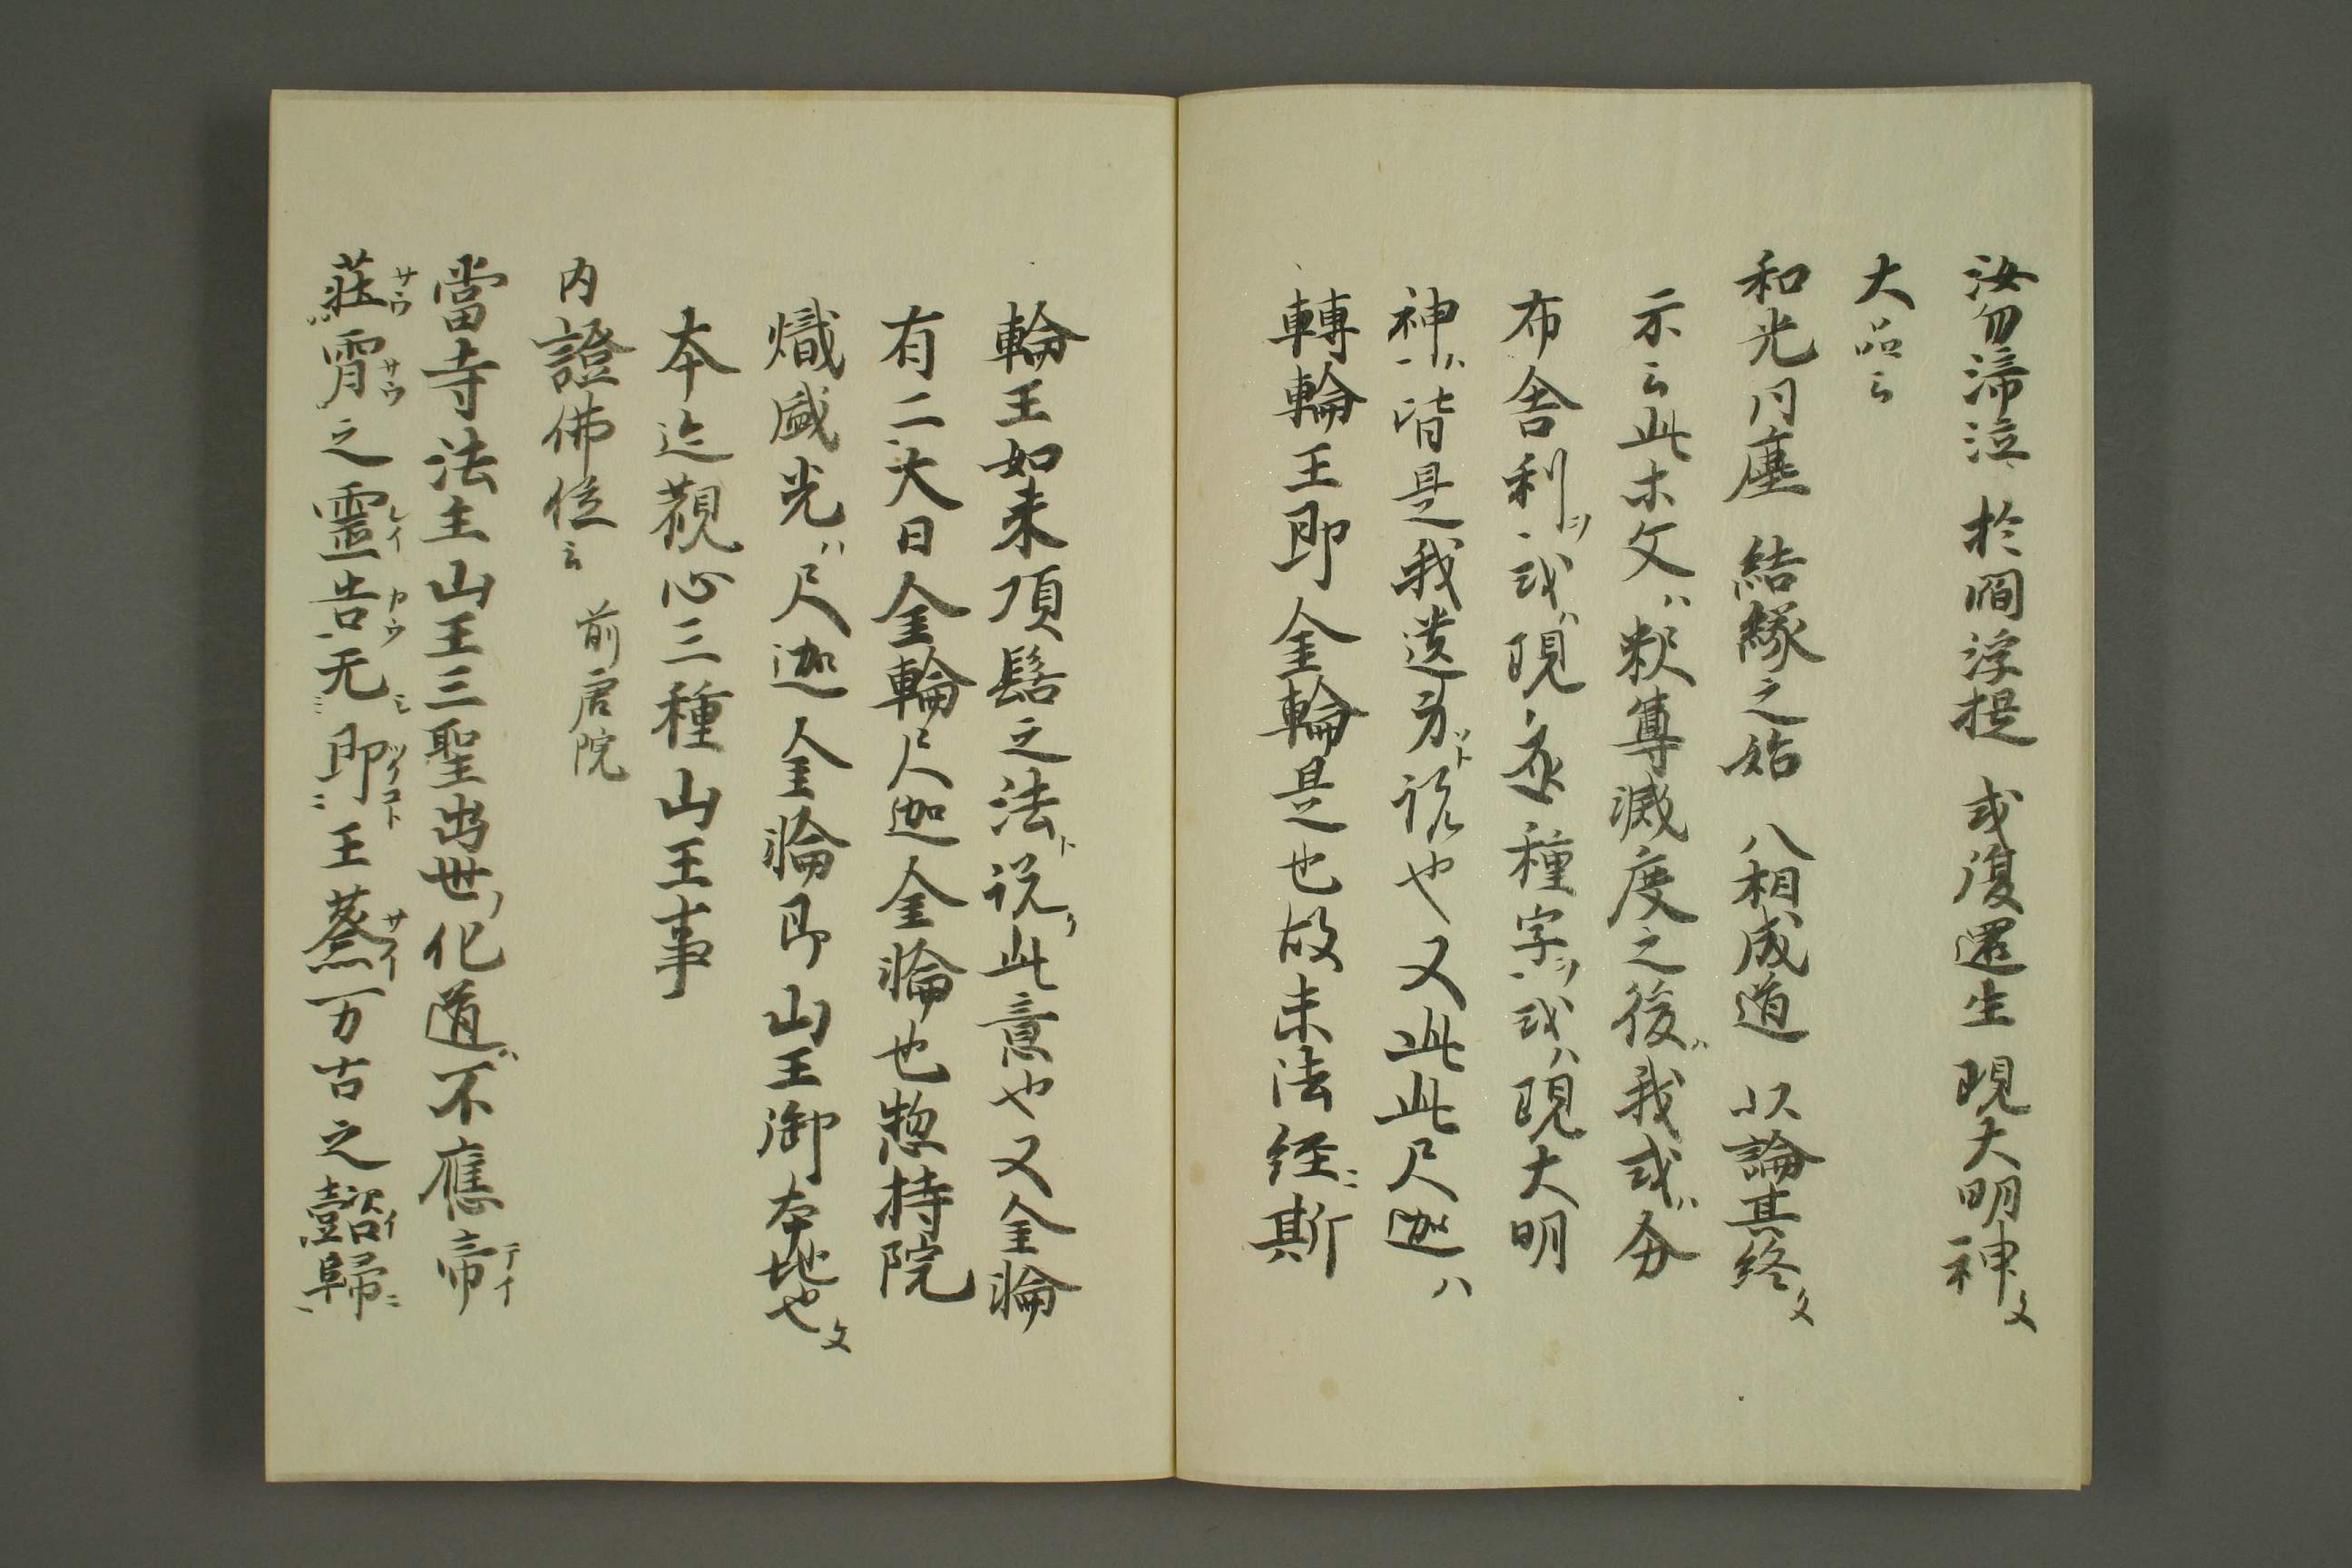 汝勿啼泣 於閻浮提 或復還生 現大明神文
大品云
和光同塵 結縁之始 八相成道 以論其終文
示云此木文ハ釈尊滅度之後ハ我或ハ分
布舎利ヲ或ハ現種字ヲ或ハ現大明
神ハ皆是我遺身ト説也又此此尺迦ハ
轉輪王即金輪是也故末法経ニ斯
輪王如来頂髻之法ト説ク此意也又金輪
有二大日金輪尺迦金輪也惣持院
熾盛光ハ尺迦金輪即山王御本地也文
本迹観心三種山王事
内證佛位云 前唐院
當寺法主山王三聖出世ノ化道ハ不應帝
荘霄之靈告无即王蔡万古之懿歸